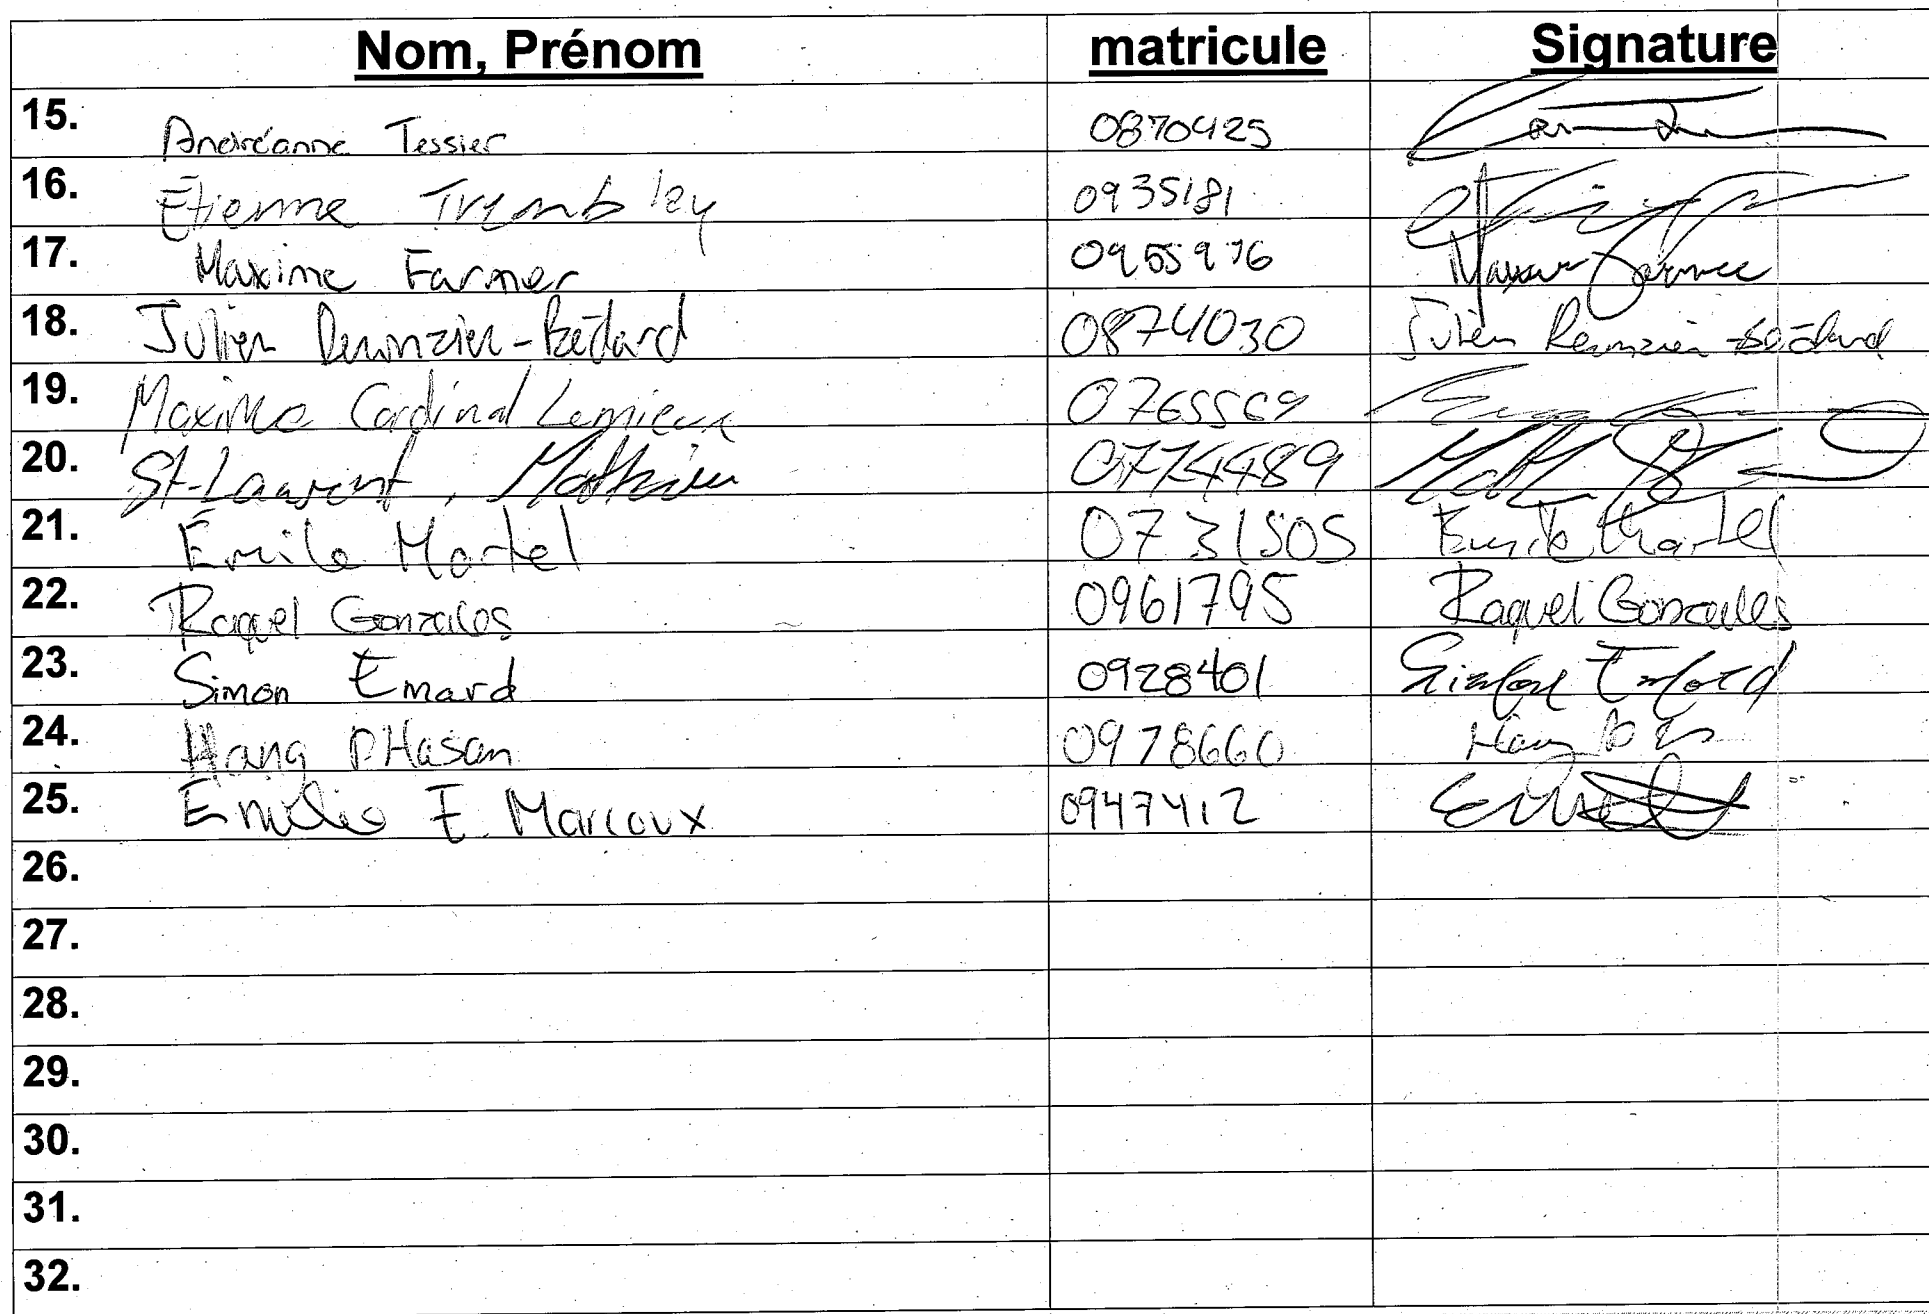 Nom, Prénom matricule Signature
15. Andréanne Tessier 0870425
16. Étienne Tremblay 0935181
17. Maxime Farmer 0955976 Maxime Farmer
18. Julien -Bédard 0874030 Julien -Bédard
19. Maxime Cardinal Lemieux 0765569
20. St-Laurent, Mathieu 0774489
21. Émile Martel 0731505 Émile Martel
22. Raquel Gonzales 0961795 Raquel Gonzales
23. Simon Emard 0928401
24. Hang PHasan 0978660
25. Emilio E. Marcoux 0947412
26.
27.
28.
29.
30.
31.
32.